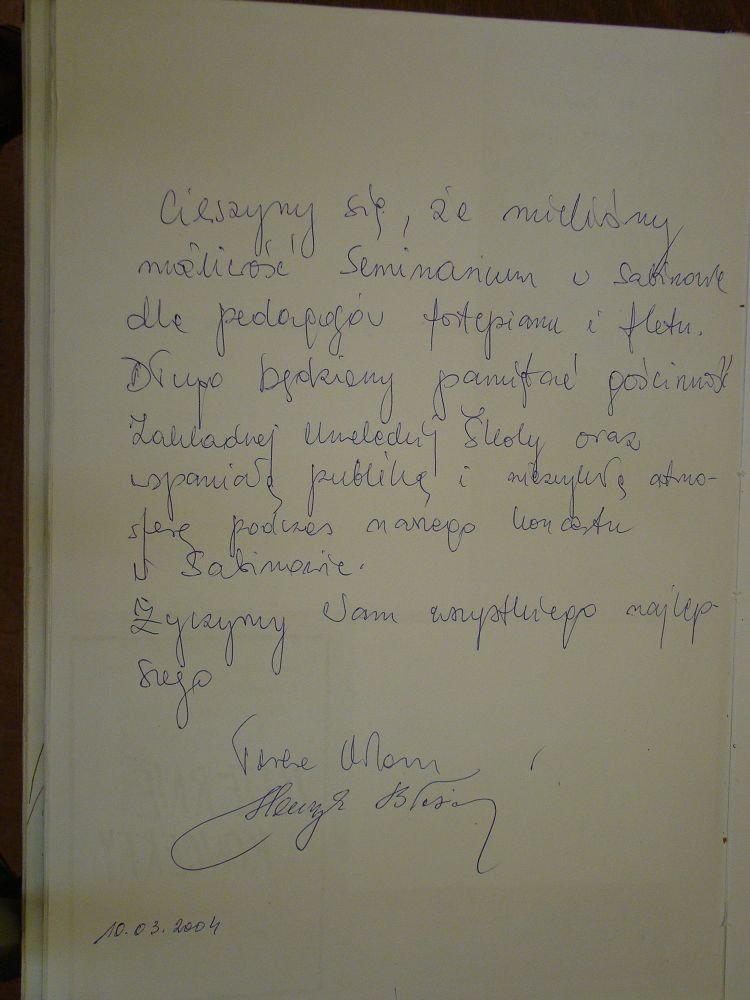 Cieszymy się, że mieliśmy
możliwość Seminarium w Sabinowie
dla pedagogów fortepianu i fletu.
Długo będziemy pamiętać gościnność
Zakladnej Umeleckej Školy oraz
wspaniałą publikę i niezwykłą atmo-
sferę podczas naszego koncertu
w Sabinowie.
Życzymy Wam wszystkiego najlep-
szego
Henryk
10.03.2004